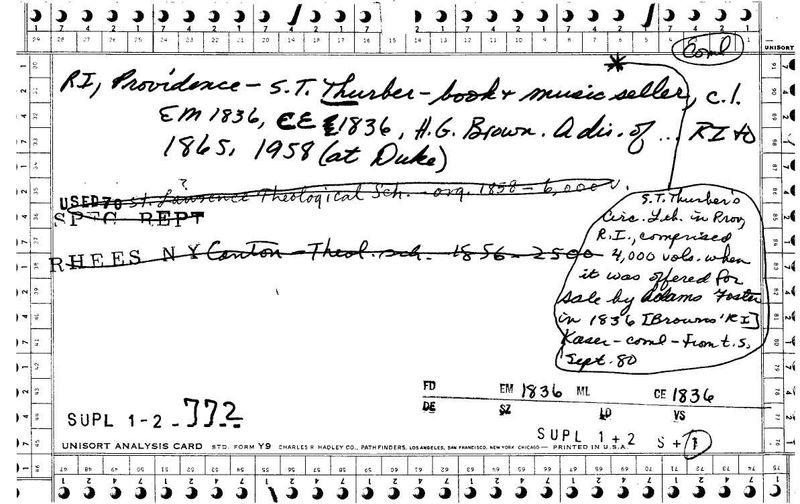 Coml
UNISORT
RI, Providence - S.T. Thurber - book + music seller, c.l.
EM 1836, CE 1836, H.G. Brown. A dir. of ... RI to
1865, 1958 (at Duke)
?
USED 70 St. Lawrence Theological Sch. - org. 1858 - 6,000 v.
SPEC REPT
RHEES NY Canton - Theol. sch. 1856 - 2500
S.T. Thurber's
Circ. Lib. in Prov,
R.I., comprised
4,000 vols. when
it was offered for
sale by Adams Foster
in 1836 [Browns' RI]
Kaser - coml - from t.s.
Sept. 80
FD EM 1836 ML CE 1836
DE SZ LD VS
SUPL 1-2 - 772
SUPL 1+2 S + 1
UNISORT ANALYSIS CARD STD. FORM Y9 CHARLES R. HADLEY CO., PATHFINDERS, LOS ANGELES, SAN FRANCISCO, NEW YORK CHICAGO — PRINTED IN U.S.A.